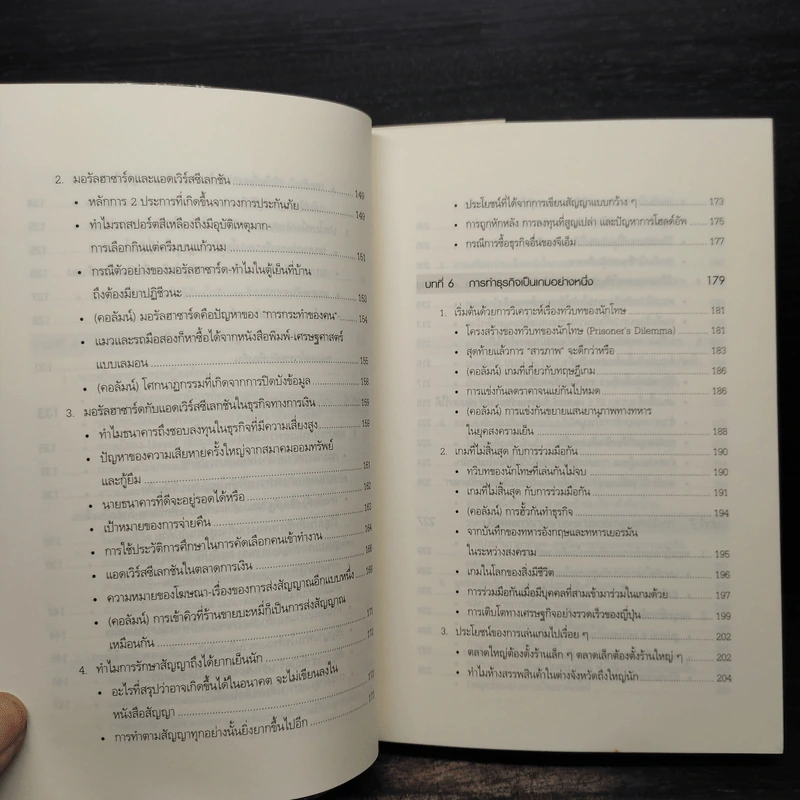 2. มอรัลฮาซาร์ดและแอดเวิร์สซีเลกชัน 149
• หลักการ 2 ประการที่เกิดขึ้นจากวงการประกันภัย 149
• ทำไมรถสปอร์ตสีเหลืองถึงมีอุบัติเหตุมาก-
การเลือกกินแต่ครีมบนแก้วนม 151
• กรณีตัวอย่างของมอรัลฮาซาร์ด-ทำไมในตู้เย็นที่บ้าน
ถึงต้องมียาปฏิชีวนะ 153
• (คอลัมน์) มอรัลฮาซาร์ดคือปัญหาของ "การกระทำของคน" 154
• แมวและรถมือสองก็หาซื้อได้จากหนังสือพิมพ์-เศรษฐศาสตร์
แบบเลมอน 155
• (คอลัมน์) โศกนาฏกรรมที่เกิดจากการปิดบังข้อมูล 158
3. มอรัลฮาซาร์ดกับแอดเวิร์สซีเลกชันในธุรกิจทางการเงิน 159
• ทำไมธนาคารถึงชอบลงทุนในธุรกิจที่มีความเสี่ยงสูง 159
• ปัญหาของความเสียหายครั้งใหญ่จากสมาคมออมทรัพย์
และกู้ยืม 161
• นายธนาคารที่ดีจะอยู่รอดได้หรือ 162
• เป้าหมายของการจ่ายคืน 163
• การใช้ประวัติการศึกษาในการคัดเลือกคนเข้าทำงาน 164
• แอดเวิร์สซีเลกชันในตลาดการเงิน
• ความหมายของโฆษณา-เรื่องของการส่งสัญญาณอีกแบบหนึ่ง
• (คอลัมน์) การเข้าคิวที่ร้านขายบะหมี่ก็เป็นการส่งสัญญาณ
เหมือนกัน
4. ทำไมการรักษาสัญญาถึงได้ยากเย็นนัก
• อะไรที่สรุปว่าอาจเกิดขึ้นได้ในอนาคต จะไม่เขียนลงใน
หนังสือสัญญา
• การทำตามสัญญาทุกอย่างนั้นยิ่งยากขึ้นไปอีก
• ประโยชน์ที่ได้จากการเขียนสัญญาแบบกว้าง ๆ 173
• การถูกหักหลัง การลงทุนที่สูญเปล่า และปัญหาการโฮลด์อัพ 175
• กรณีการซื้อธุรกิจอื่นของจีเอ็ม 177
บทที่ 6 การทำธุรกิจเป็นเกมอย่างหนึ่ง 179
1. เริ่มต้นด้วยการวิเคราะห์เรื่องทวิบทของนักโทษ 181
• โครงสร้างของทวิบทของนักโทษ (Prisoner's Dilemma) 181
• สุดท้ายแล้วการ "สารภาพ" จะดีกว่าหรือ 183
• (คอลัมน์) เกมที่เกี่ยวกับทฤษฎีเกม 186
• การแข่งกันลดราคาจนแย่กันไปหมด 186
• (คอลัมน์) การแข่งกันขยายแสนยานุภาพทางทหาร
ในยุคสงครามเย็น 188
2. เกมที่ไม่สิ้นสุด กับการร่วมมือกัน 190
• ทวิบทของนักโทษที่เล่นกันไม่จบ 190
• เกมที่ไม่สิ้นสุด กับการร่วมมือกัน 191
• (คอลัมน์) การฮั้วกันทำธุรกิจ 194
• จากบันทึกของทหารอังกฤษและทหารเยอรมัน
ในระหว่างสงคราม 195
• เกมในโลกของสิ่งมีชีวิต 196
• การร่วมมือกันเมื่อมีบุคคลที่สามเข้ามาร่วมในเกมด้วย 197
• การเติบโตทางเศรษฐกิจอย่างรวดเร็วของญี่ปุ่น 199
3. ประโยชน์ของการเล่นเกมไปเรื่อย ๆ 202
• ตลาดใหญ่ต้องตั้งร้านเล็ก ๆ ตลาดเล็กต้องตั้งร้านใหญ่ ๆ 202
• ทำไมห้างสรรพสินค้าในต่างจังหวัดถึงใหญ่นัก 204